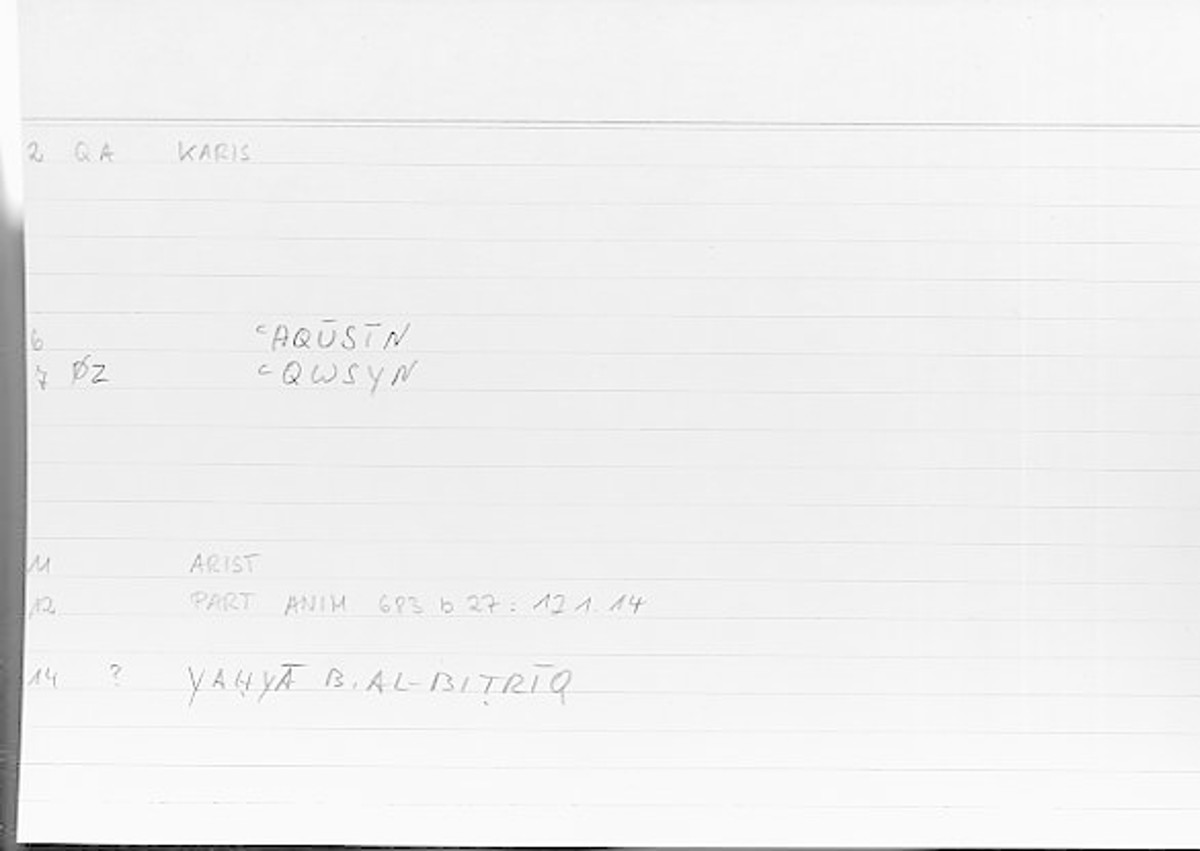 2 QA KARIS
6 ʿAQŪSĪN
7 ØZ ʿQWSYN
11 ARIST
12 PART ANIM 683 b 27 : 121.14
14 ? YAḤYĀ B. AL-BIṬRĪQ